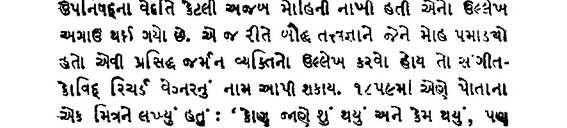 ઉપનિષદ્‌ના વેદાંતે કેટલી અજબ મોહિની નાખી હતી એનો ઉલ્લેખ
અગાઉ થઈ ગયો છે. એ જ રીતે બૌદ્ધ તત્ત્વજ્ઞાને જેને મોહ પમાડ્યો
હતો એવી પ્રસિદ્ધ જર્મન વ્યક્તિનો ઉલ્લેખ કરવો હોય તો સંગીત-
કોવિદ્ રિચર્ડ વેગ્નરનું નામ આપી શકાય. ૧૮૫૯માં એણે પોતાના
એક મિત્રને લખ્યું હતું : ‘કોણ જાણે શું થયું અને કેમ થયું, પણ